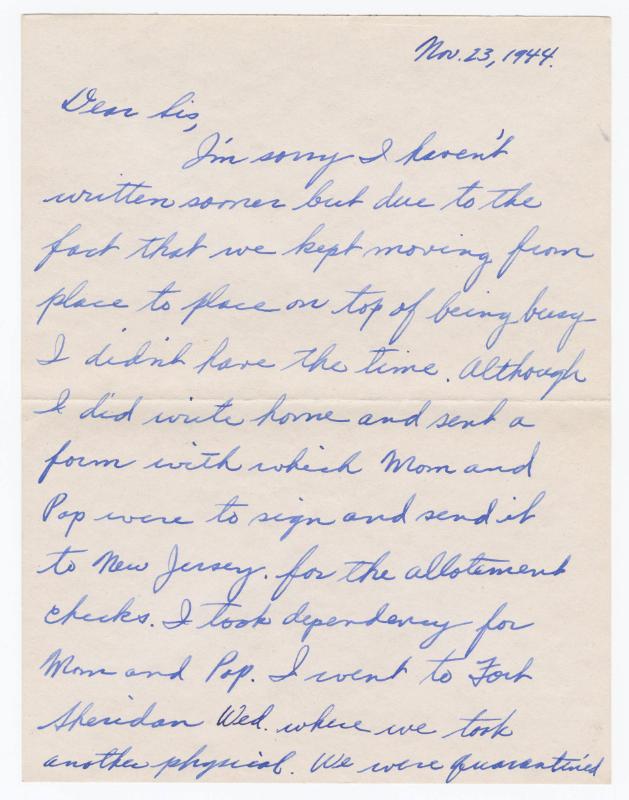 Nov. 23, 1944.
Dear Sis,
I'm sorry I haven't
written sooner but due to the
fact that we kept moving from
place to place on top of being busy
I didn't have the time. Although
I did write home and sent a
form with which Mom and
Pop were to sign and send it
to New Jersey. for the allotement
checks. I took dependency for
Mom and Pop. I went to Fort
Sheridan Wed. where we took
another physical. We were quarantined